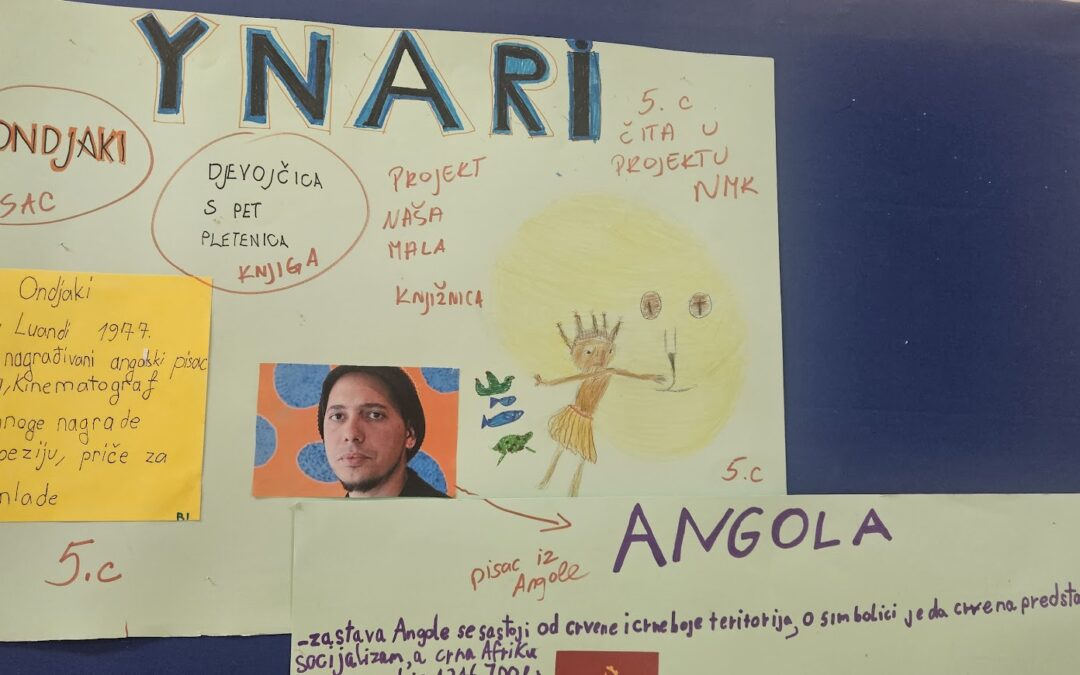 YNARI
ONDJAKI
SAC
DJEVOJČICA
S PET
PLETENICA
KNJIGA
PROJEKT
NAŠA
MALA
KNJIŽNICA
5. c
ČITA U
PROJEKTU
NMK
Ondjaki
Luandi 1977.
nagrađivani angolski pisac
, Kinematograf
noge nagrade
oeziju, priče za
mlade
BI
5.c
5.c
pisac iz
Angole
ANGOLA
-zastava Angole se sastoji od crvene i crne boje teritorija, o simbolici je da crvena predsta
socijalizam, a crna Afriku